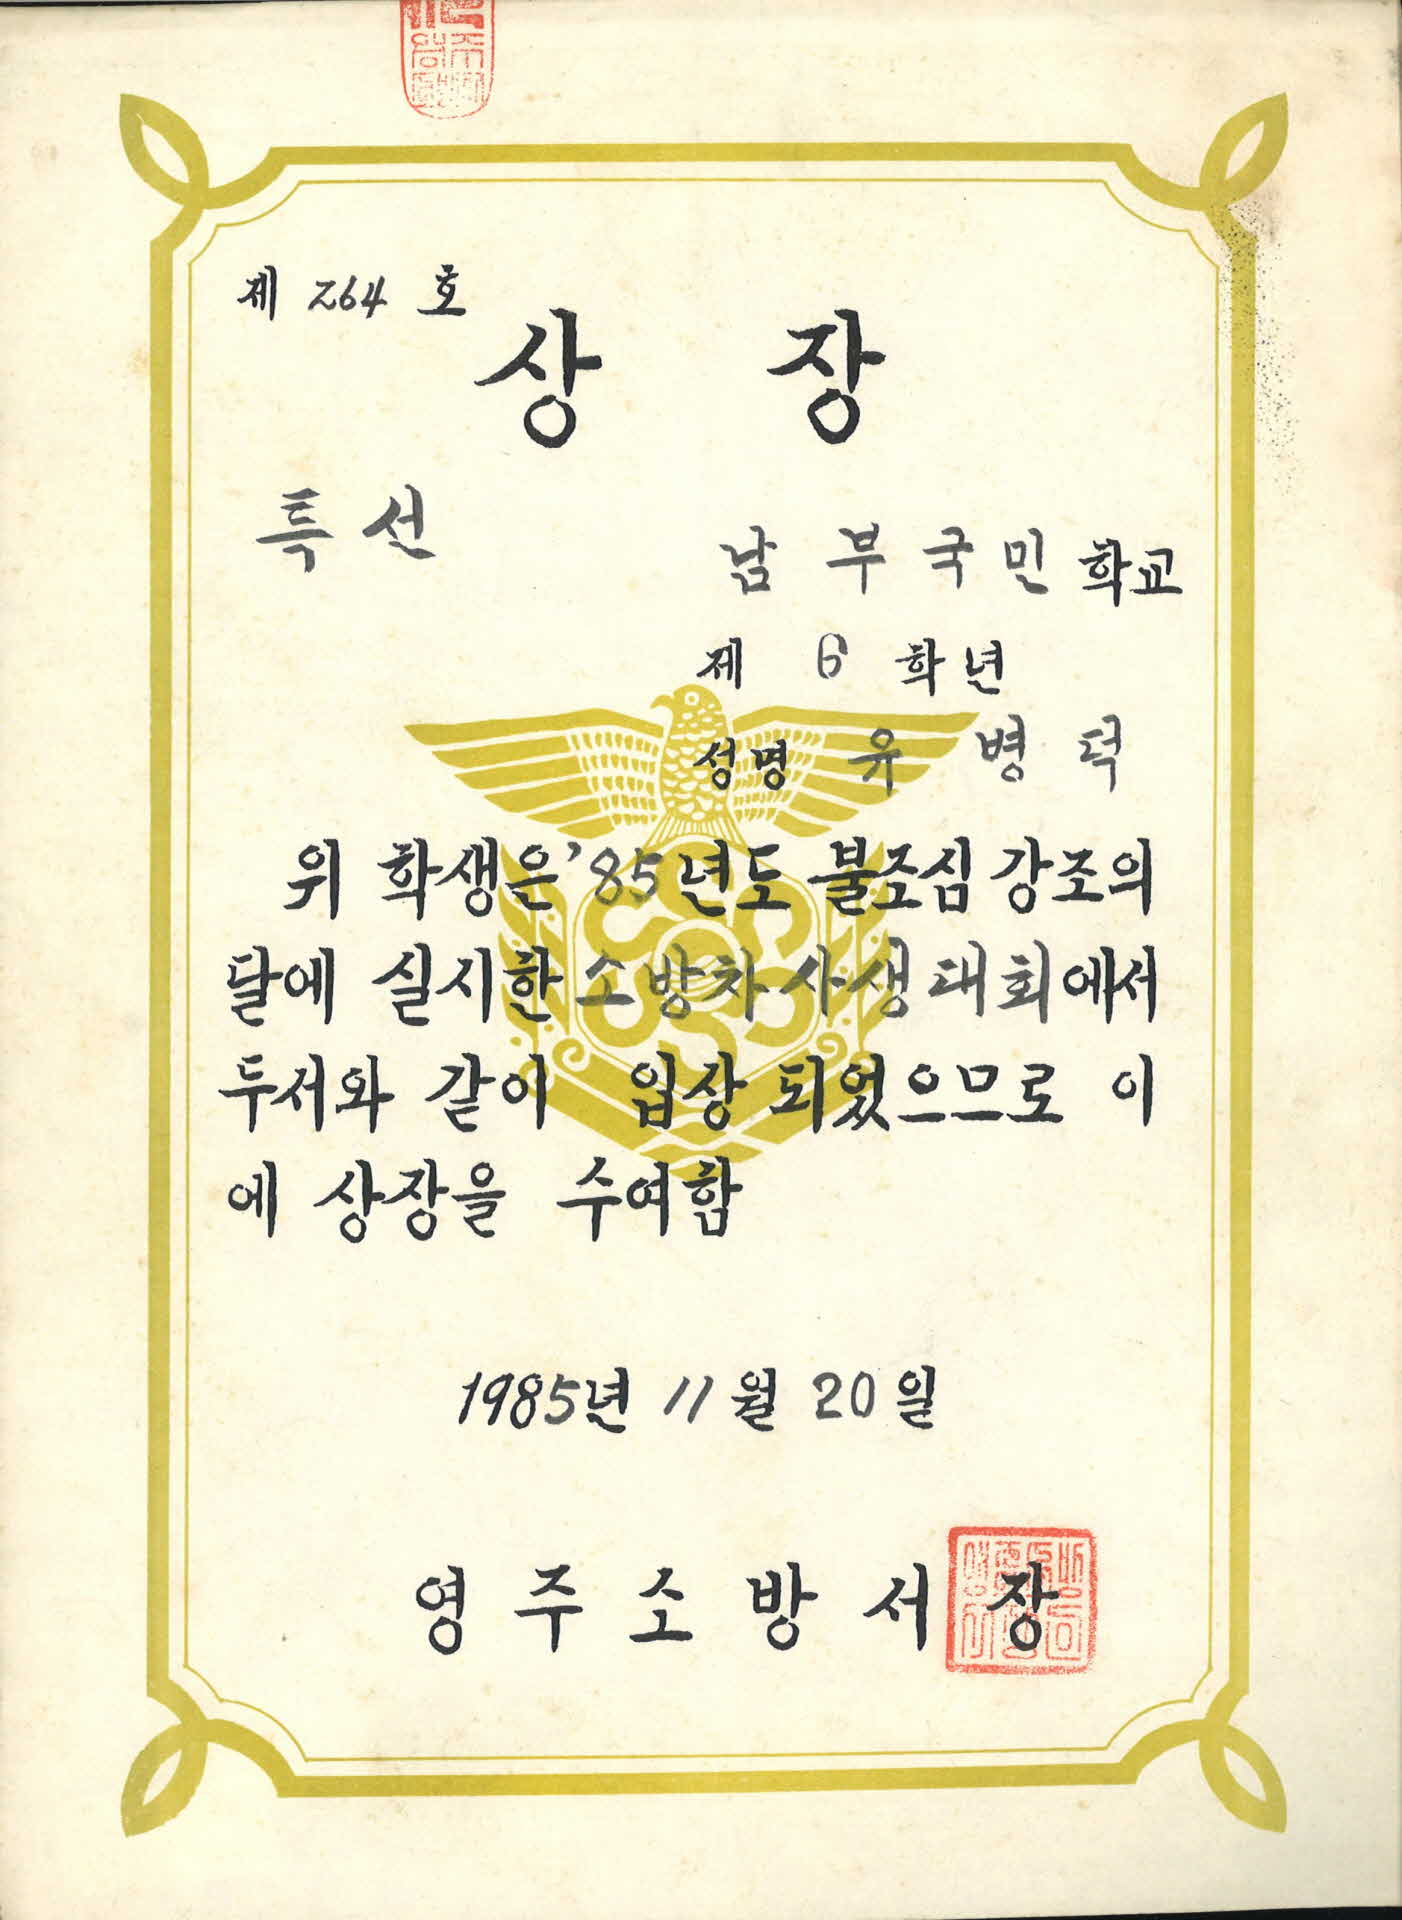 제 264 호
상 장
특선
남부국민학교
제 6 학년
성명 유병덕
위 학생은 '85년도 불조심 강조의
달에 실시한 소방차사생대회에서
두서와 같이 입상 되었으므로 이
에 상장을 수여함
1985년 11월 20일
영주소방서장